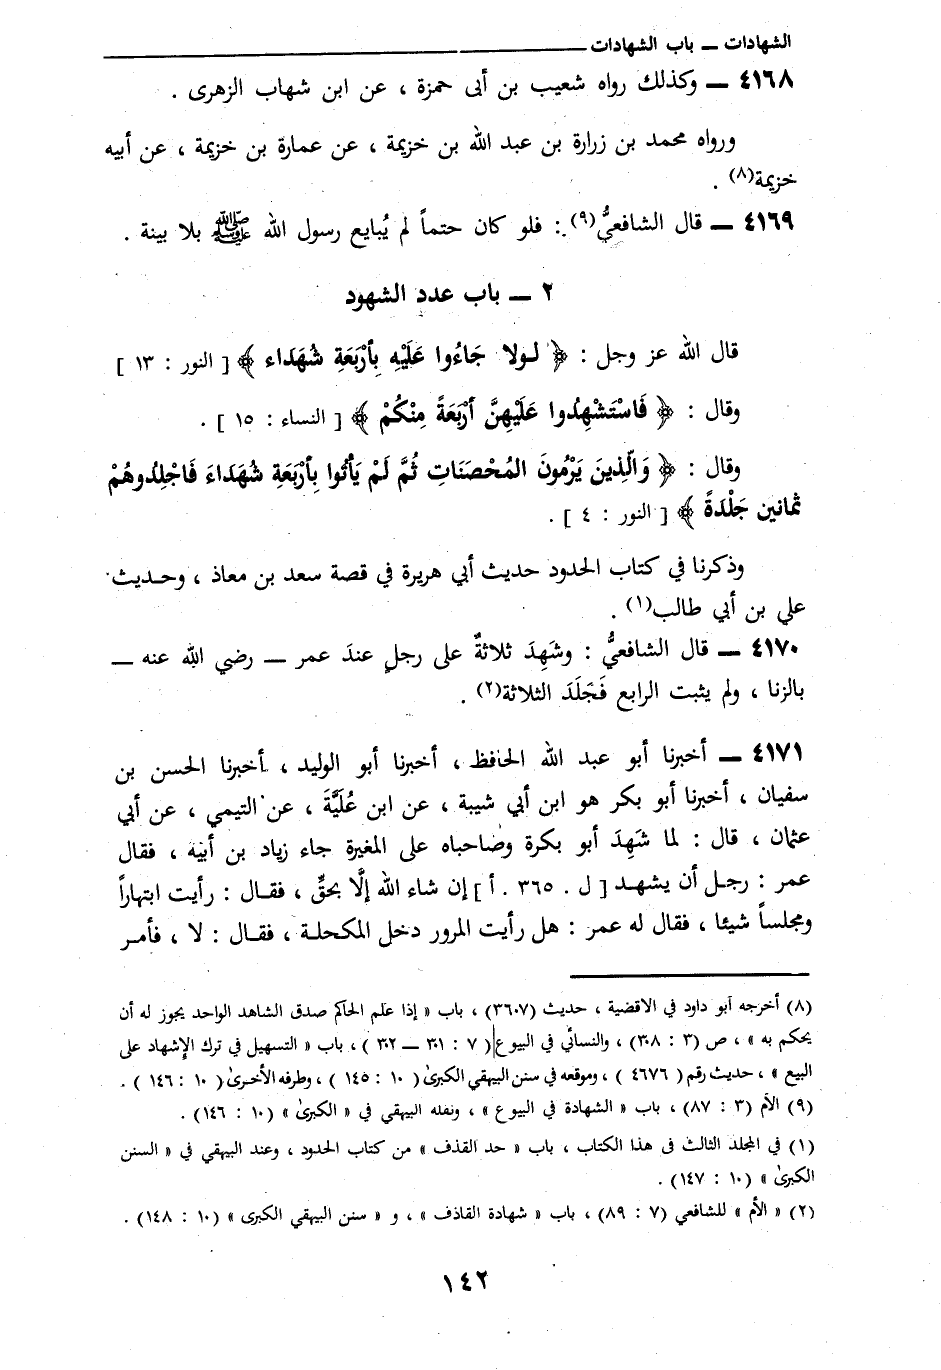 الشهادات ــ باب الشهادات
٤١٦٨ ــ وكذلك رواه شعيب بن أبى حمزة ، عن ابن شهاب الزهرى .
ورواه محمد بن زرارة بن عبد الله بن خزيمة ، عن عمارة بن خزيمة ، عن أبيه
خزيمة(٨) .
٤١٦٩ ــ قال الشافعيُّ(٩) : فلو كان حتماً لم يُبايع رسول الله ﷺ بلا بينة .
٢ ــ باب عدد الشهود
قال الله عز وجل : ﴿ لـولا جَاءُوا عَلَيْهِ بِأَرْبَعَةِ شُهَدَاء ﴾ [ النور : ١٣ ]
وقال : ﴿ فَاسْتَشْهِدُوا عَلَيْهِنَّ أَرْبَعَةً مِنْكُمْ ﴾ [ النساء : ١٥ ] .
وقال : ﴿ وَالَّذِينَ يَرْمُونَ المُحْصَنَاتِ ثُمَّ لَمْ يَأْتُوا بِأَرْبَعَةِ شُهَدَاءَ فَاجْلِدُوهُمْ
ثَمانين جَلْدَةً ﴾ [ النور : ٤ ] .
وذكرنا في كتاب الحدود حديث أبي هريرة في قصة سعد بن معاذ ، وحـديث
علي بن أبي طالب(١) .
٤١٧٠ ــ قال الشافعيُّ : وشَهِدَ ثلاثةٌ على رجلٍ عندَ عمر ــ رضي الله عنه ــ
بالزنا ، ولم يثبت الرابع فَجَلَدَ الثلاثة(٢) .
٤١٧١ ــ أخبرنا أبو عبد الله الحافظ ، أخبرنا أبو الوليد ، أخبرنا الحسن بن
سفيان ، أخبرنا أبو بكر هو ابن أبي شيبة ، عن ابن عُلَيَّةَ ، عن التيمي ، عن أبي
عثمان ، قال : لما شَهِدَ أبو بكرة وصاحباه على المغيرة جاء زياد بن أبيه ، فقال
عمر : رجـل أن يشهـد [ ل . ٣٦٥ . أ ] إن شاء الله إلَّا بحقٍّ ، فقـال : رأيت ابتهاراً
ومجلساً شيئا ، فقال له عمر : هل رأيت المرور دخل المكحلـة ، فقـال : لا ، فأمـر
(٨) أخرجه أبو داود في الاقضية ، حديث (٣٦٠٧) ، باب « إذا علم الحاكم صدق الشاهد الواحد يجوز له أن
يحكم به » ، ص (٣ : ٣٠٨) ، والنسائي في البيوع ( ٧ : ٣٠١ ــ ٣٠٢ ) ، باب « التسهيل في ترك الإشهاد على
البيع » ، حديث رقم ( ٤٦٧٦ ) ، وموقعه في سنن البيهقي الكبرىٰ ( ١٠ : ١٤٥ ) ، وطرفه الأخـرىٰ ( ١٠ : ١٤٦ ) .
(٩) الأم (٣ : ٨٧) ، باب « الشهادة في البيوع » ، ونقله البيهقي في « الكبرىٰ » (١٠ : ١٤٦) .
(١) في المجلد الثالث فى هذا الكتاب ، باب « حد القذف » من كتاب الحدود ، وعند البيهقي في « السنن
الكبرىٰ » (١٠ : ١٤٧) .
(٢) « الأم » للشافعي (٧ : ٨٩) ، باب « شهادة القاذف » ، و « سنن البيهقي الكبرى » (١٠ : ١٤٨) .
١٤٢